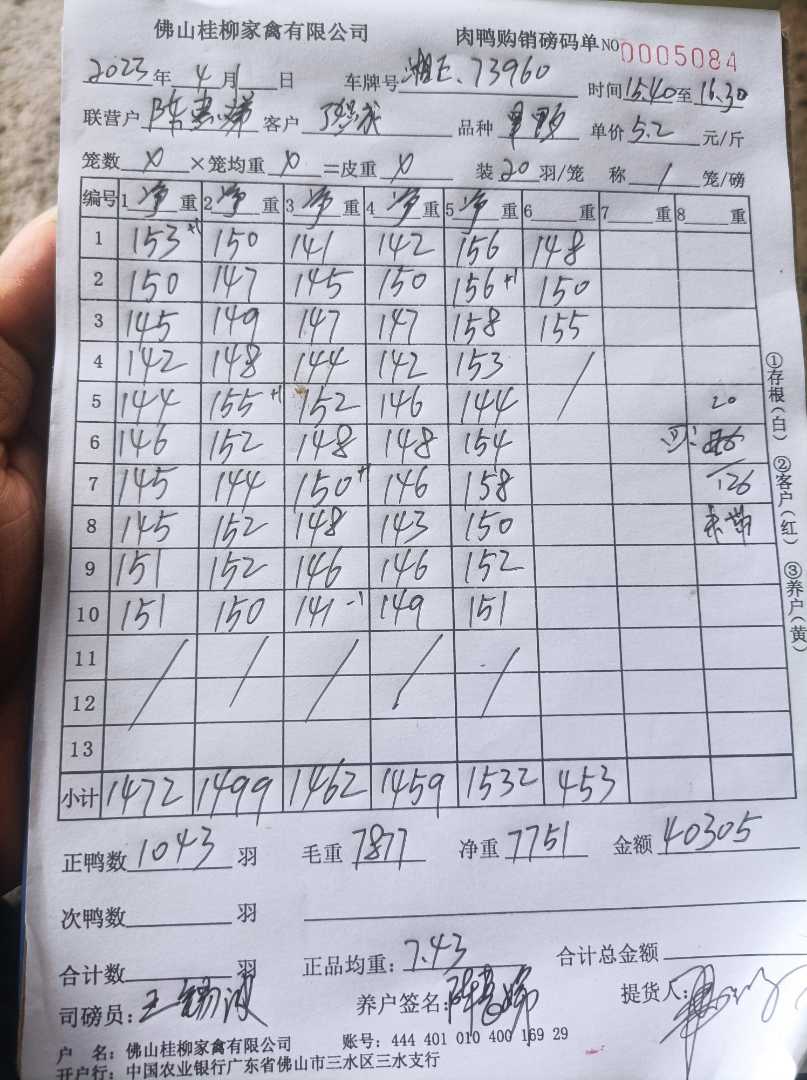 佛山桂柳家禽有限公司 肉鸭购销磅码单 NO 0005084
2023年4月1日 车牌号 湘E.73960 时间15.40至16.30
联营户 陈 客户 品种 单价5.2元/斤
笼数 × 笼均重 = 皮重 装20羽/笼 称1笼/磅
编号 1净重 2净重 3净重 4净重 5净重 6重 7重 8重
1 153+1 150 141 142 156 148
2 150 147 145 150 156+1 150
3 145 149 147 147 158 155
4 142 148 144 142 153 /
5 144 155+1 152 146 144 20
6 146 152 148 148 154
7 145 144 150+1 146 158 126
8 145 152 148 143 150
9 151 152 146 146 152
10 151 150 141-1 149 151
11 / / / / /
12
13
小计 1472 1499 1462 1459 1532 453
正鸭数1043羽 毛重7877 净重7751 金额40305
次鸭数 羽
合计数 羽 正品均重:7.43 合计总金额
司磅员:王 养户签名:陈 提货人:
户 名:佛山桂柳家禽有限公司 账号:444 401 010 400 169 29
开户行:中国农业银行广东省佛山市三水区三水支行
①存根(白) ②客户(红) ③养户(黄)